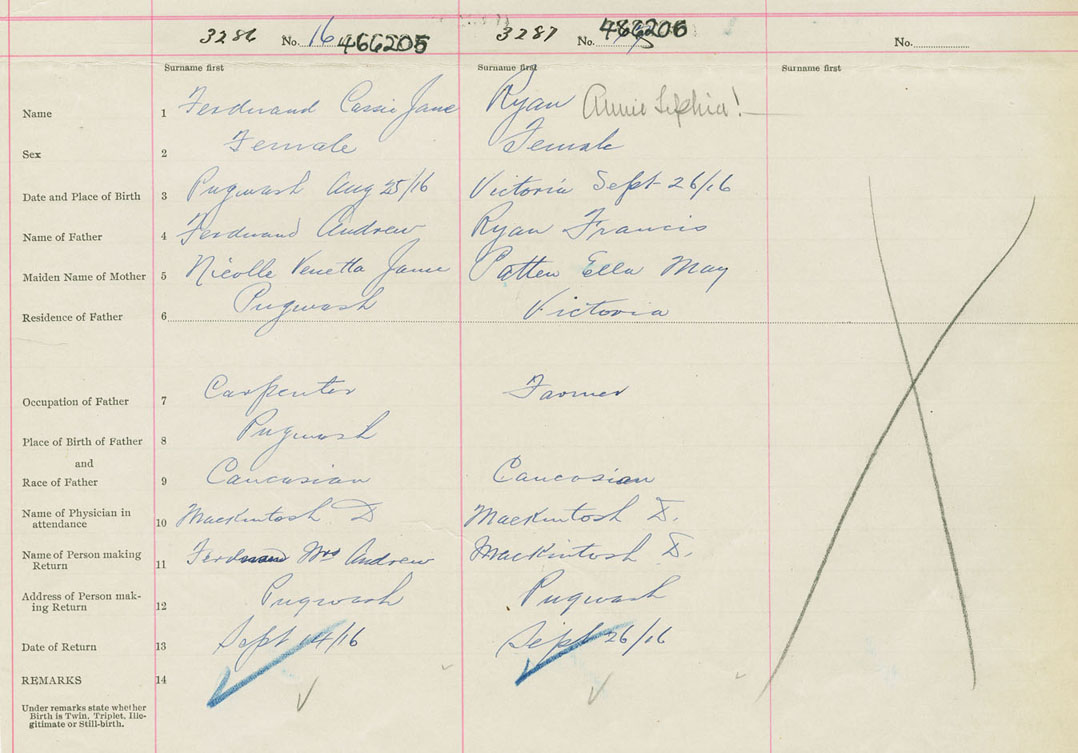 3286 No. 16 466205 3287 No. 466206 No.
Surname first Surname first Surname first
Name 1 Ferdinand Cassie Jane Ryan Annie Sophia!
Sex 2 Female Female
Date and Place of Birth 3 Pugwash Aug 25/16 Victoria Sept 26/16
Name of Father 4 Ferdinand Andrew Ryan Francis
Maiden Name of Mother 5 Nicolle Venetta Jane Patten Ella May
Residence of Father 6 Pugwash Victoria
Occupation of Father 7 Carpenter Farmer
Place of Birth of Father 8 Pugwash
and
Race of Father 9 Caucasian Caucasian
Name of Physician in
attendance 10 Mackintosh D Mackintosh D.
Name of Person making
Return 11 Ferdinand Mrs Andrew Mackintosh D.
Address of Person mak-
ing Return 12 Pugwash Pugwash
Date of Return 13 Sept 14/16 Sept 26/16
REMARKS 14
Under remarks state whether
Birth is Twin, Triplet, Ille-
gitimate or Still-birth.